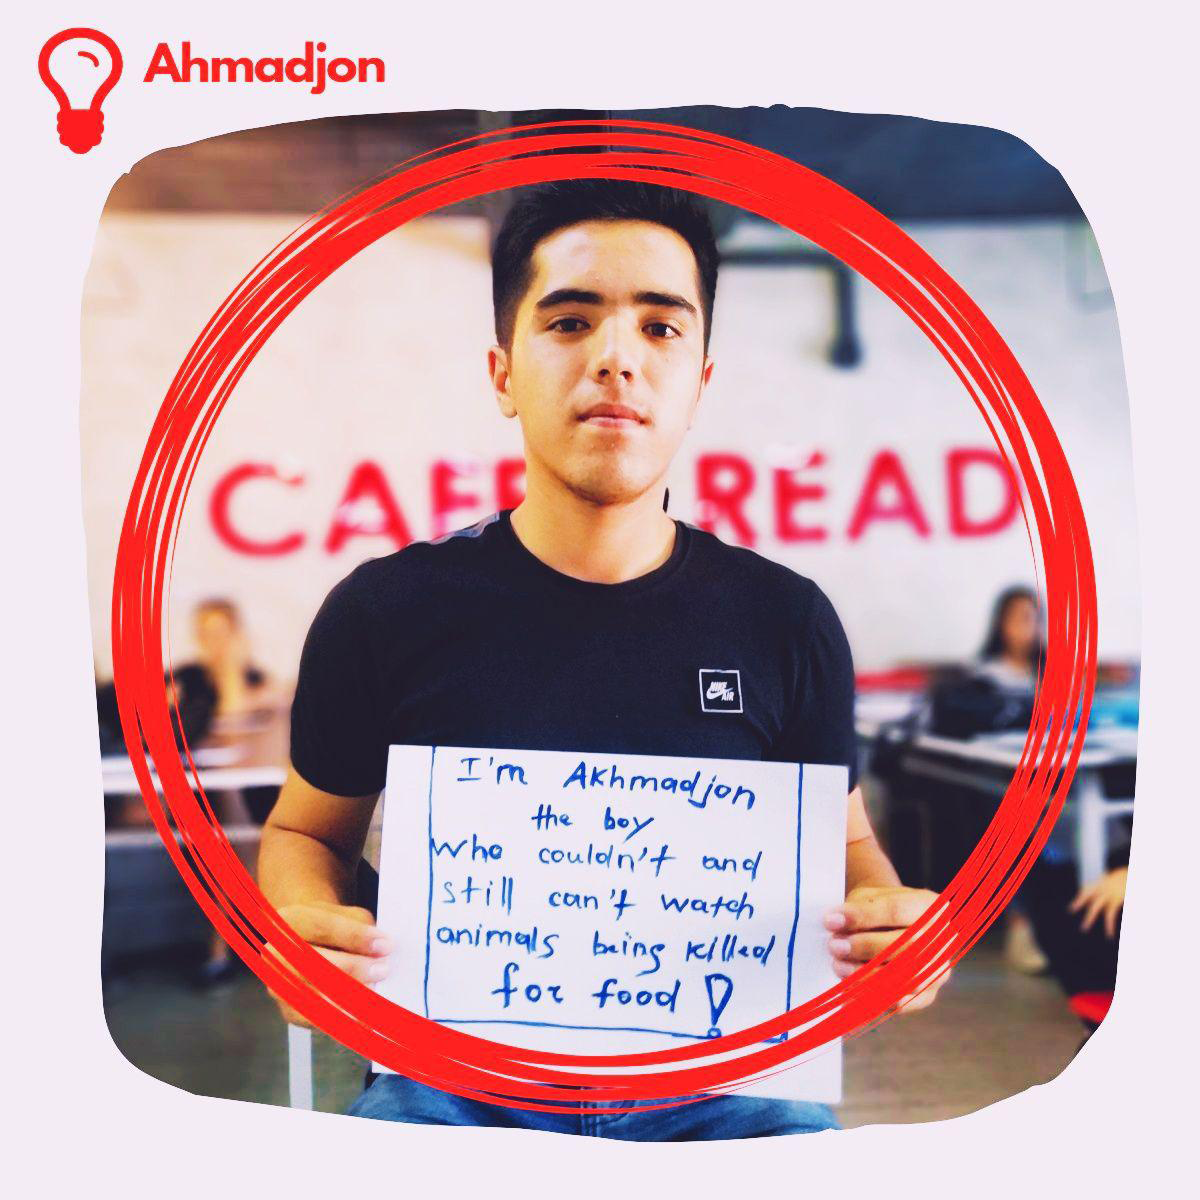 Ahmadjon
CAFE READ
NIKE
AIR
I'm Akhmadjon
the boy
who couldn't and
still can't watch
animals being killed
for food!